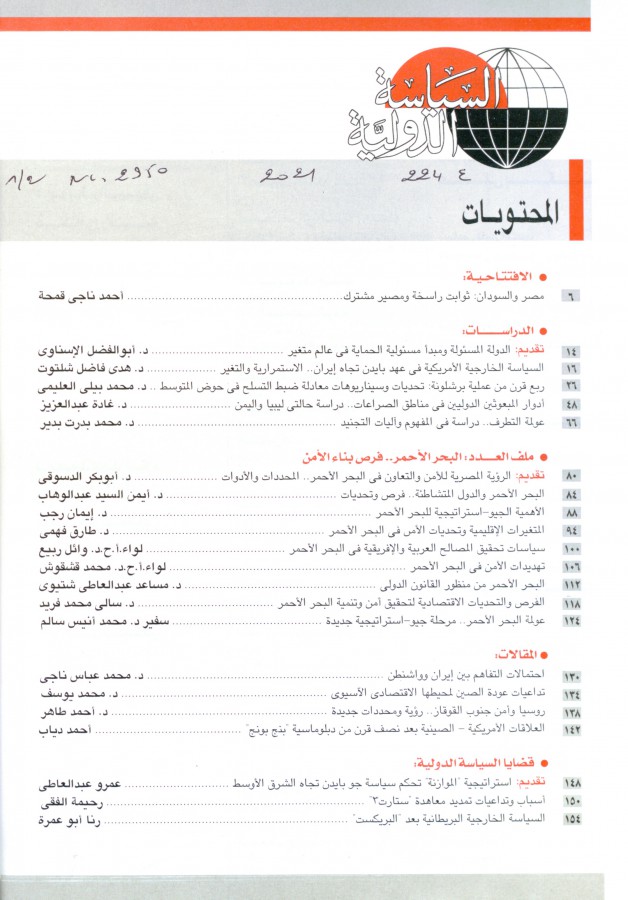 السياسة
الدولية
224 ع 2021
المحتويات
● الافتتاحية:
٦ مصر والسودان: ثوابت راسخة ومصير مشترك ........ أحمد ناجى قمحة
● الدراسات:
١٤ تقديم: الدولة المسئولة ومبدأ مسئولية الحماية فى عالم متغير ........ د. أبوالفضل الإسناوى
١٦ السياسة الخارجية الأمريكية فى عهد بايدن تجاه إيران.. الاستمرارية والتغير ........ د. هدى فاضل شلتوت
٢٦ ربع قرن من عملية برشلونة: تحديات وسيناريوهات معادلة ضبط التسلح فى حوض المتوسط .. د. محمد بيلى العليمى
٤٨ أدوار المبعوثين الدوليين فى مناطق الصراعات.. دراسة حالتى ليبيا واليمن ........ د. غادة عبدالعزيز
٦٦ عولمة التطرف.. دراسة فى المفهوم وآليات التجنيد ........ د. محمد بدرت بدير
● ملف العدد: البحر الأحمر.. فرص بناء الأمن
٨٠ تقديم: الرؤية المصرية للأمن والتعاون فى البحر الأحمر.. المحددات والأدوات ........ د. أبوبكر الدسوقى
٨٤ البحر الأحمر والدول المتشاطئة.. فرص وتحديات ........ د. أيمن السيد عبدالوهاب
٨٨ الأهمية الجيو-استراتيجية للبحر الأحمر ........ د. إيمان رجب
٩٤ المتغيرات الإقليمية وتحديات الأمن فى البحر الأحمر ........ د. طارق فهمى
١٠٠ سياسات تحقيق المصالح العربية والإفريقية فى البحر الأحمر ........ لواء.أ.ح.د. وائل ربيع
١٠٦ تهديدات الأمن فى البحر الأحمر ........ لواء.أ.ح.د. محمد قشقوش
١١٢ البحر الأحمر من منظور القانون الدولى ........ د. مساعد عبدالعاطى شتيوى
١١٨ الفرص والتحديات الاقتصادية لتحقيق أمن وتنمية البحر الأحمر ........ د. سالى محمد فريد
١٢٤ عولة البحر الأحمر.. مرحلة جيو-استراتيجية جديدة ........ سفير د. محمد أنيس سالم
● المقالات:
١٣٠ احتمالات التفاهم بين إيران وواشنطن ........ د. محمد عباس ناجى
١٣٤ تداعيات عودة الصين لمحيطها الاقتصادى الآسيوى ........ د. محمد يوسف
١٣٨ روسيا وأمن جنوب القوقاز.. رؤية ومحددات جديدة ........ د. أحمد طاهر
١٤٢ العلاقات الأمريكية - الصينية بعد نصف قرن من دبلوماسية "بنج بونج" ........ أحمد دياب
● قضايا السياسة الدولية:
١٤٨ تقديم: استراتيجية "الموازنة" تحكم سياسة جو بايدن تجاه الشرق الأوسط ........ عمرو عبدالعاطى
١٥٠ أسباب وتداعيات تمديد معاهدة "ستارت٣" ........ رحيمة الفقى
١٥٤ السياسة الخارجية البريطانية بعد "البريكست" ........ رنا أبو عمرة